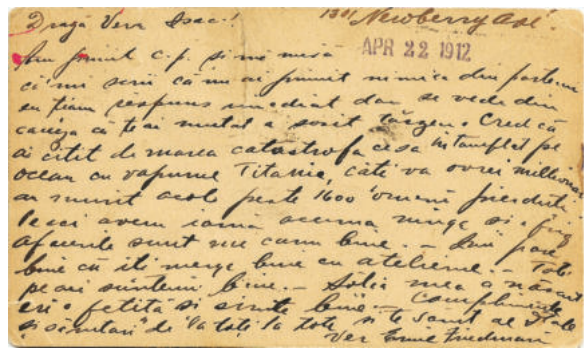 Dragă Verr Isac!
1301 Newberry Ave.
APR 22 1912
Am primit c.p. și mă miră
că mi scrii că nu ai primit nimica din partea
eu țiam respuns imediat dar se vede din
cauza că te ai mutat a sosit târzeu. Cred că
ai citit de marea catastrofa ce sa întamplat pe
ocean cu vaporul Titanic, câti va ovrei millionari
au murit acolo peste 1600 omeni pierduti.
avem iarnă acuma ninge si frig
afacerile sunt nu cam bine. — Îmi pare
bine că iti merge bine cu — Toti
pe aici suntem bine. — Soția mea a născut
eri o fetită si simte bine — Complimente
si sănătari de la toți la tote si te sarut al
Ver Emil Friedman